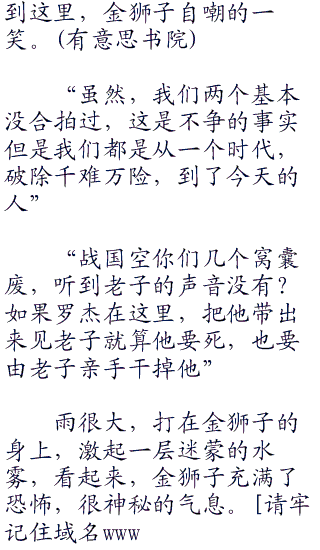 到这里，金狮子自嘲的一
笑。(有意思书院)
“虽然，我们两个基本
没合拍过，这是不争的事实
但是我们都是从一个时代，
破除千难万险，到了今天的
人”
“战国空你们几个窝囊
废，听到老子的声音没有？
如果罗杰在这里，把他带出
来见老子就算他要死，也要
由老子亲手干掉他”
雨很大，打在金狮子的
身上，激起一层迷蒙的水
雾，看起来，金狮子充满了
恐怖，很神秘的气息。[请牢
记住域名www